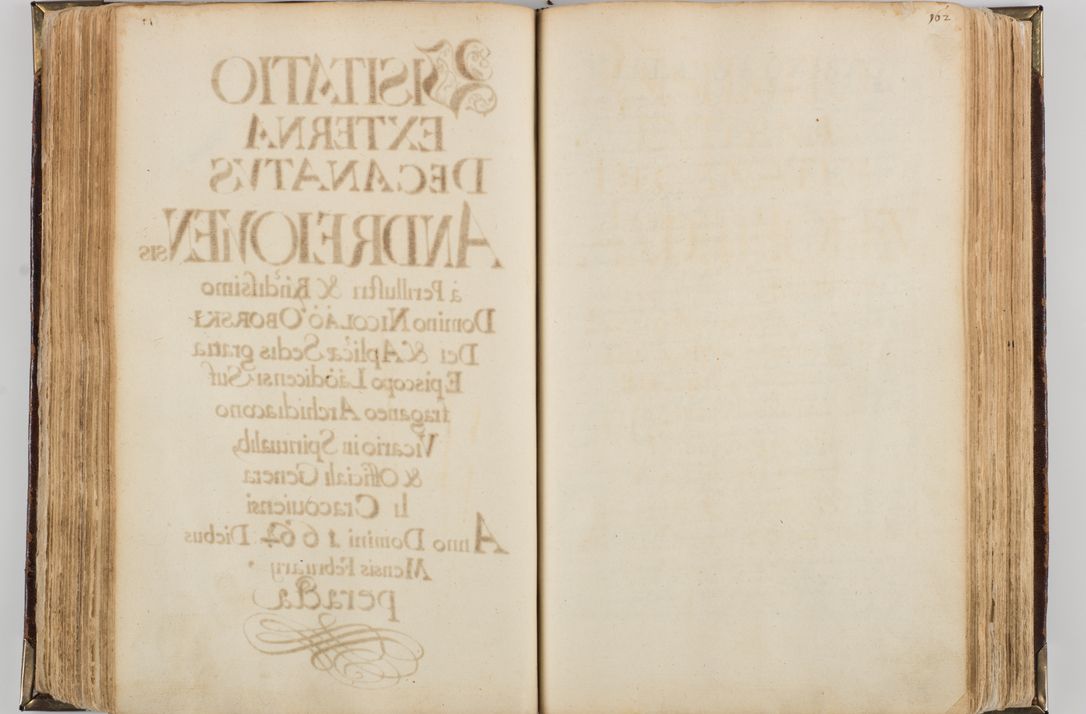 102
VISITATIO
EXTERNA
DECANATVS
ANDREIOVENSIS
à Perillustri & Rndissimo
Domino NICOLAO OBORSKI
Dei & Aplicæ Sedis gratia
Episcopo Laodicensi Suf
fraganeo Archidiacono
Vicario in Spiritualib
& Officiali Genera
li Cracouiensi
Anno Domini 1664 Diebus
Mensis February
peracta